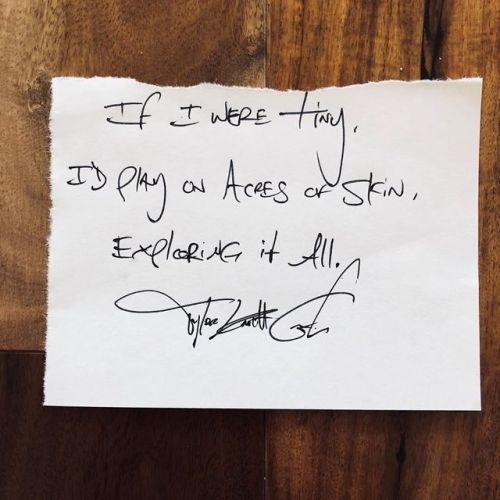 If I were tiny,
I'd play on Acres of skin,
Exploring it All.
Tyler Knott